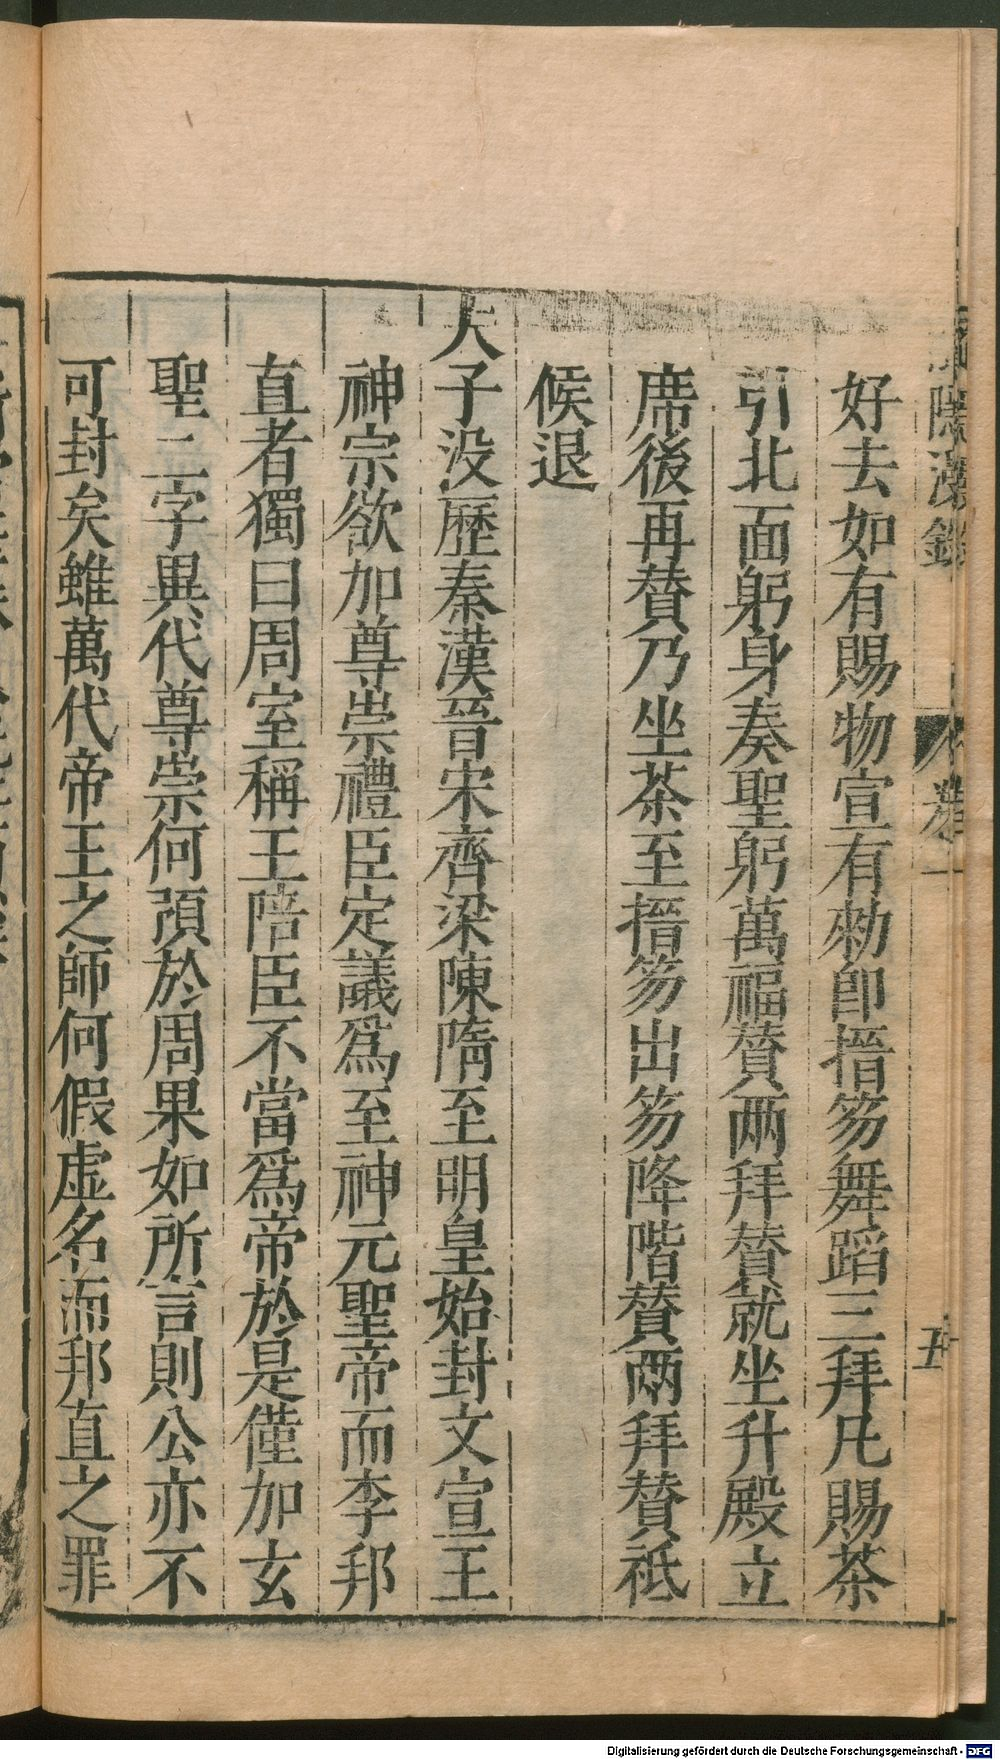 好去如有賜物宣有勑卽搢笏舞蹈三拜凡賜茶
引北面躬身奏聖躬萬福贊两拜贊就坐升殿立
席後再贊乃坐茶至搢笏出笏降階贊两拜贊祗
候退
夫子没歷秦漢晉宋齊梁陳隋至明皇始封文宣王
神宗欲加尊崇禮臣定議爲至神元聖帝而李邦
直者獨曰周室稱王陪臣不當爲帝於是僅加玄
聖二字異代尊崇何預於周果如所言則公亦不
可封矣雖萬代帝王之師何假虛名而邦直之罪
隱漫錄
卷一
五
Digitalisierung gefördert durch die Deutsche Forschungsgemeinschaft - DFG